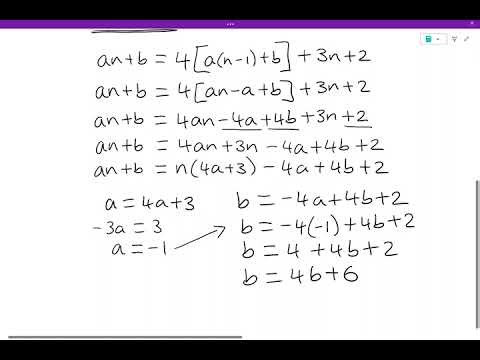 an+b = 4[a(n-1)+b] + 3n+2
an+b = 4[an-a+b] + 3n+2
an+b = 4an-4a+4b+3n+2
an+b = 4an+3n-4a+4b+2
an+b = n(4a+3)-4a+4b+2
a = 4a+3
-3a = 3
a = -1
b = -4a+4b+2
b = -4(-1)+4b+2
b = 4+4b+2
b = 4b+6